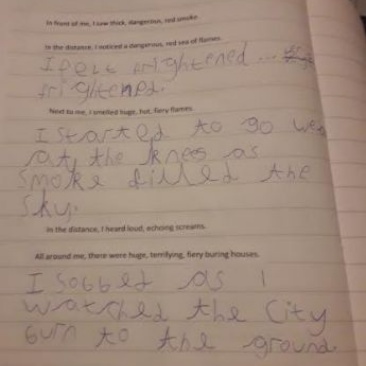 In front of me, I saw thick, dangerous, red smoke
In the distance, I noticed a dangerous, red sea of flames.
I pelt frightened ...
frightened.
Next to me, I smelled huge, hot, fiery flames.
I started to go wea
at the knees as
smoke filled the
sky.
In the distance, I heard loud, echoing screams.
All around me, there were huge, terrifying, fiery buring houses.
I sobbed as I
watched the City
burn to the ground.